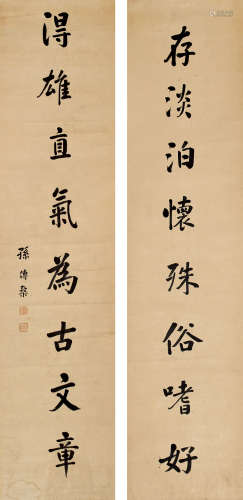 存淡泊懷殊俗嗜好
得雄直氣為古文章
孫傳